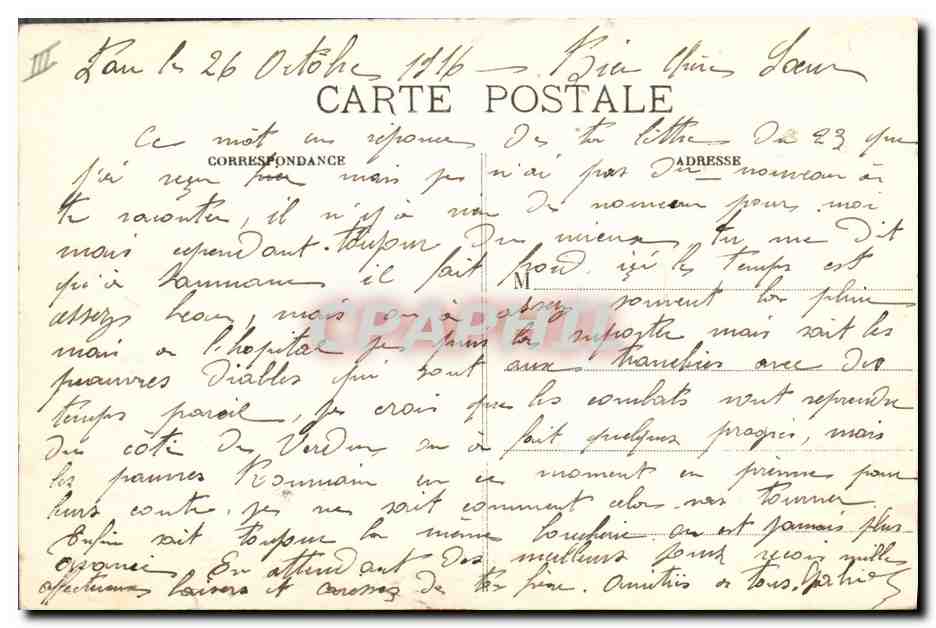 III
Pau le 26 Octobre 1916 — Bien Chère Soeur
CARTE POSTALE
Ce môt en réponce de ta lettre du 23 que
CORRESPONDANCE ADRESSE
j'ai reçu hier mais je n'ai pas du nouveau à
te raconter, il n'y à rien de nouveau pour moi
mais cependant toujour du mieux tu me dit
qu'à il fait froid. içi les temps est
M
assez beau, mais on à assez souvent la pluie
mais a l'hopital je puis la suporter mais sait les
peauvres diables qui sont aux tranchées avec des
temps pareil, je crois que les combats vont reprendre
du côté de Verdun on à fait quelques progrès, mais
les pauvres Roumain en ce moment en prènne pour
leurs conte. je ne sait comment cela vas tourner
Enfin sait toujour la même boucherie on est jamais plus
avancé. En attendant des meilleurs jours reçois milles
affectueux baisers et caresses de ton frère. Amitiés a tous.
CPAPHIL